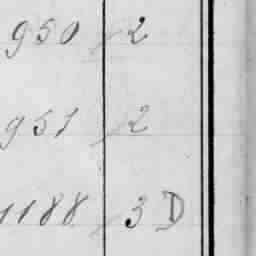 950 2
951 2
1188 3 D